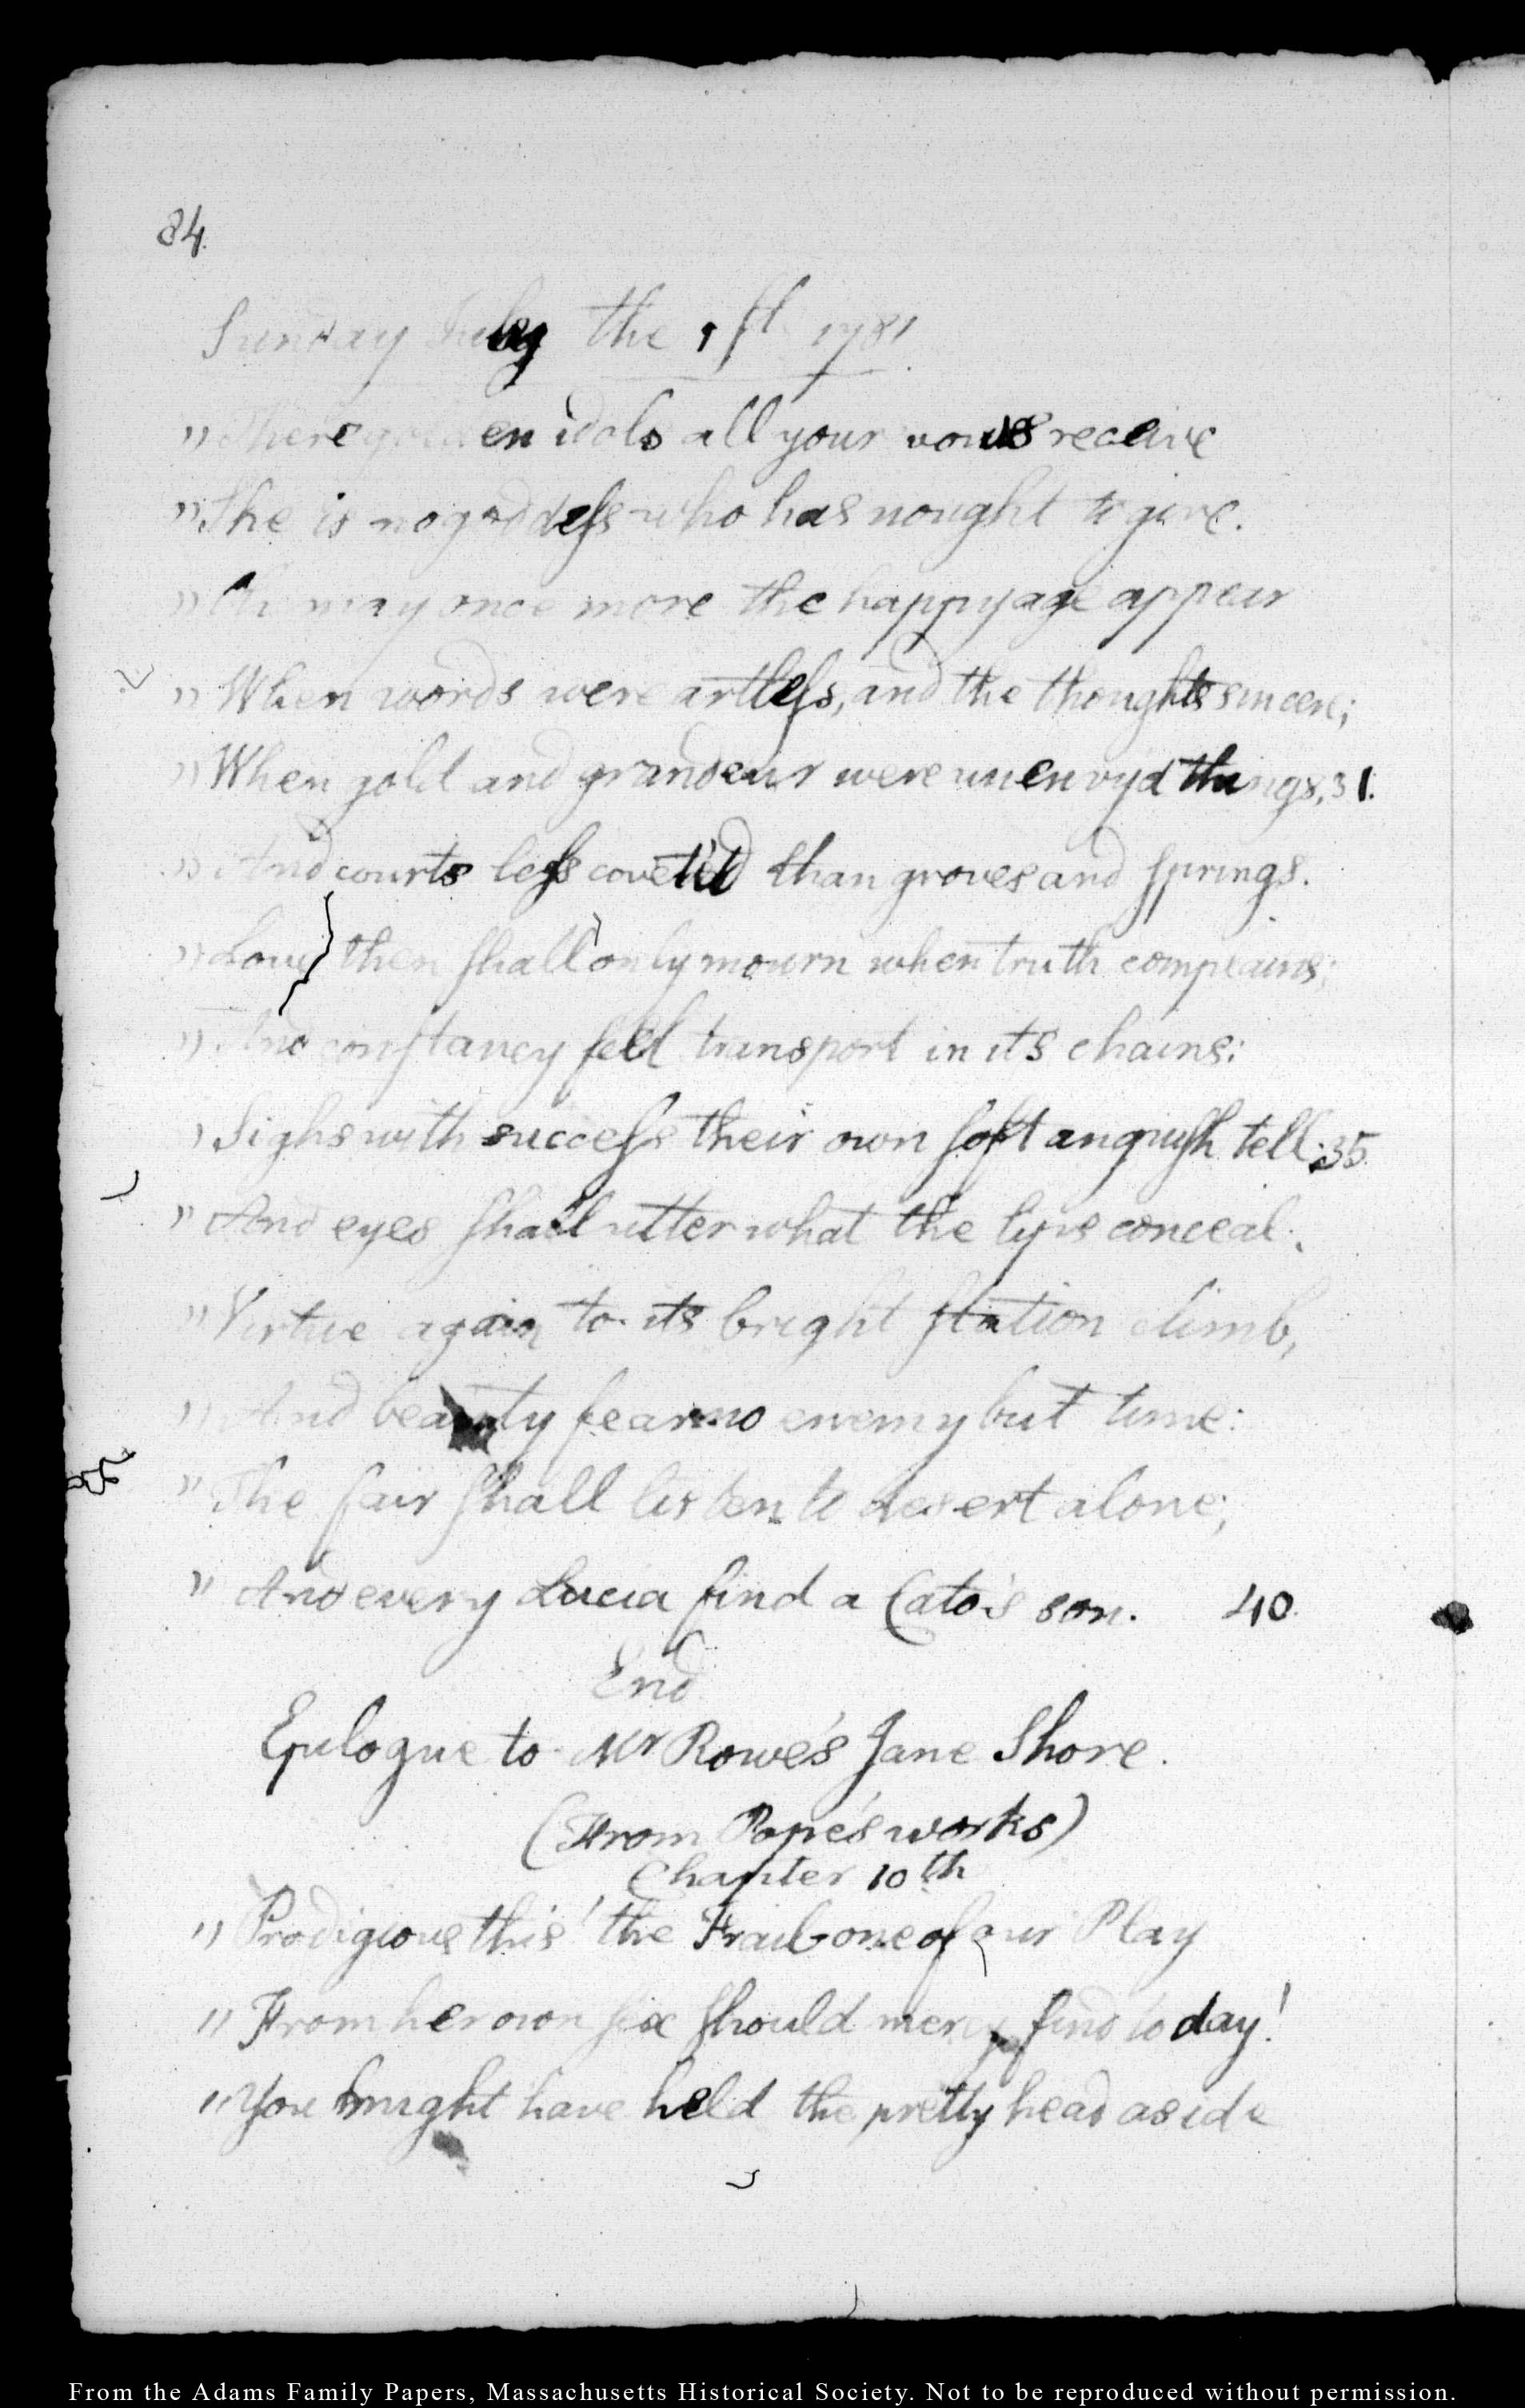 84.
Sunday July the 1st 1781.
" There golden idols all your vows receive
" She is no goddess who has nought to give.
" Oh may once more the happy age appear
" When words were artless, and the thoughts sincere;
" When gold and grandeur were unenvy'd things, 31.
" And courts less coveted than groves and springs.
" Love then shall only mourn when truth complains;
" And constancy feel transport in its chains:
" Sighs with success their own soft anguish tell; 35.
" And eyes shall utter what the lips conceal:
" Virtue again to its bright station climb,
" And beauty fear no enemy but time:
" The fair shall listen to desert alone;
" And every Lucia find a Cato's son. 40.
End
Epilogue to Mr Rowe's Jane Shore.
(From Pope's works)
Chapter 10th
" Prodigious this! the Frail-one of our Play
" From her own sex should mercy find to day!
" You might have held the pretty head aside
From the Adams Family Papers, Massachusetts Historical Society. Not to be reproduced without permission.